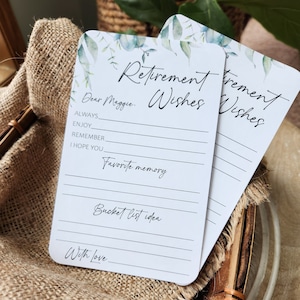 Retirement
Wishes
Dear Maggie,
ALWAYS
ENJOY
REMEMBER
I HOPE YOU
Favorite memory
Bucket list idea
With love
etirement
Wishes